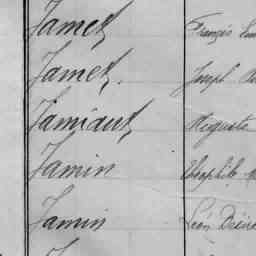 Jamet François
Jamet. Joseph
Jamiaut Auguste
Jamin Théophile
Jamin Léon Désiré